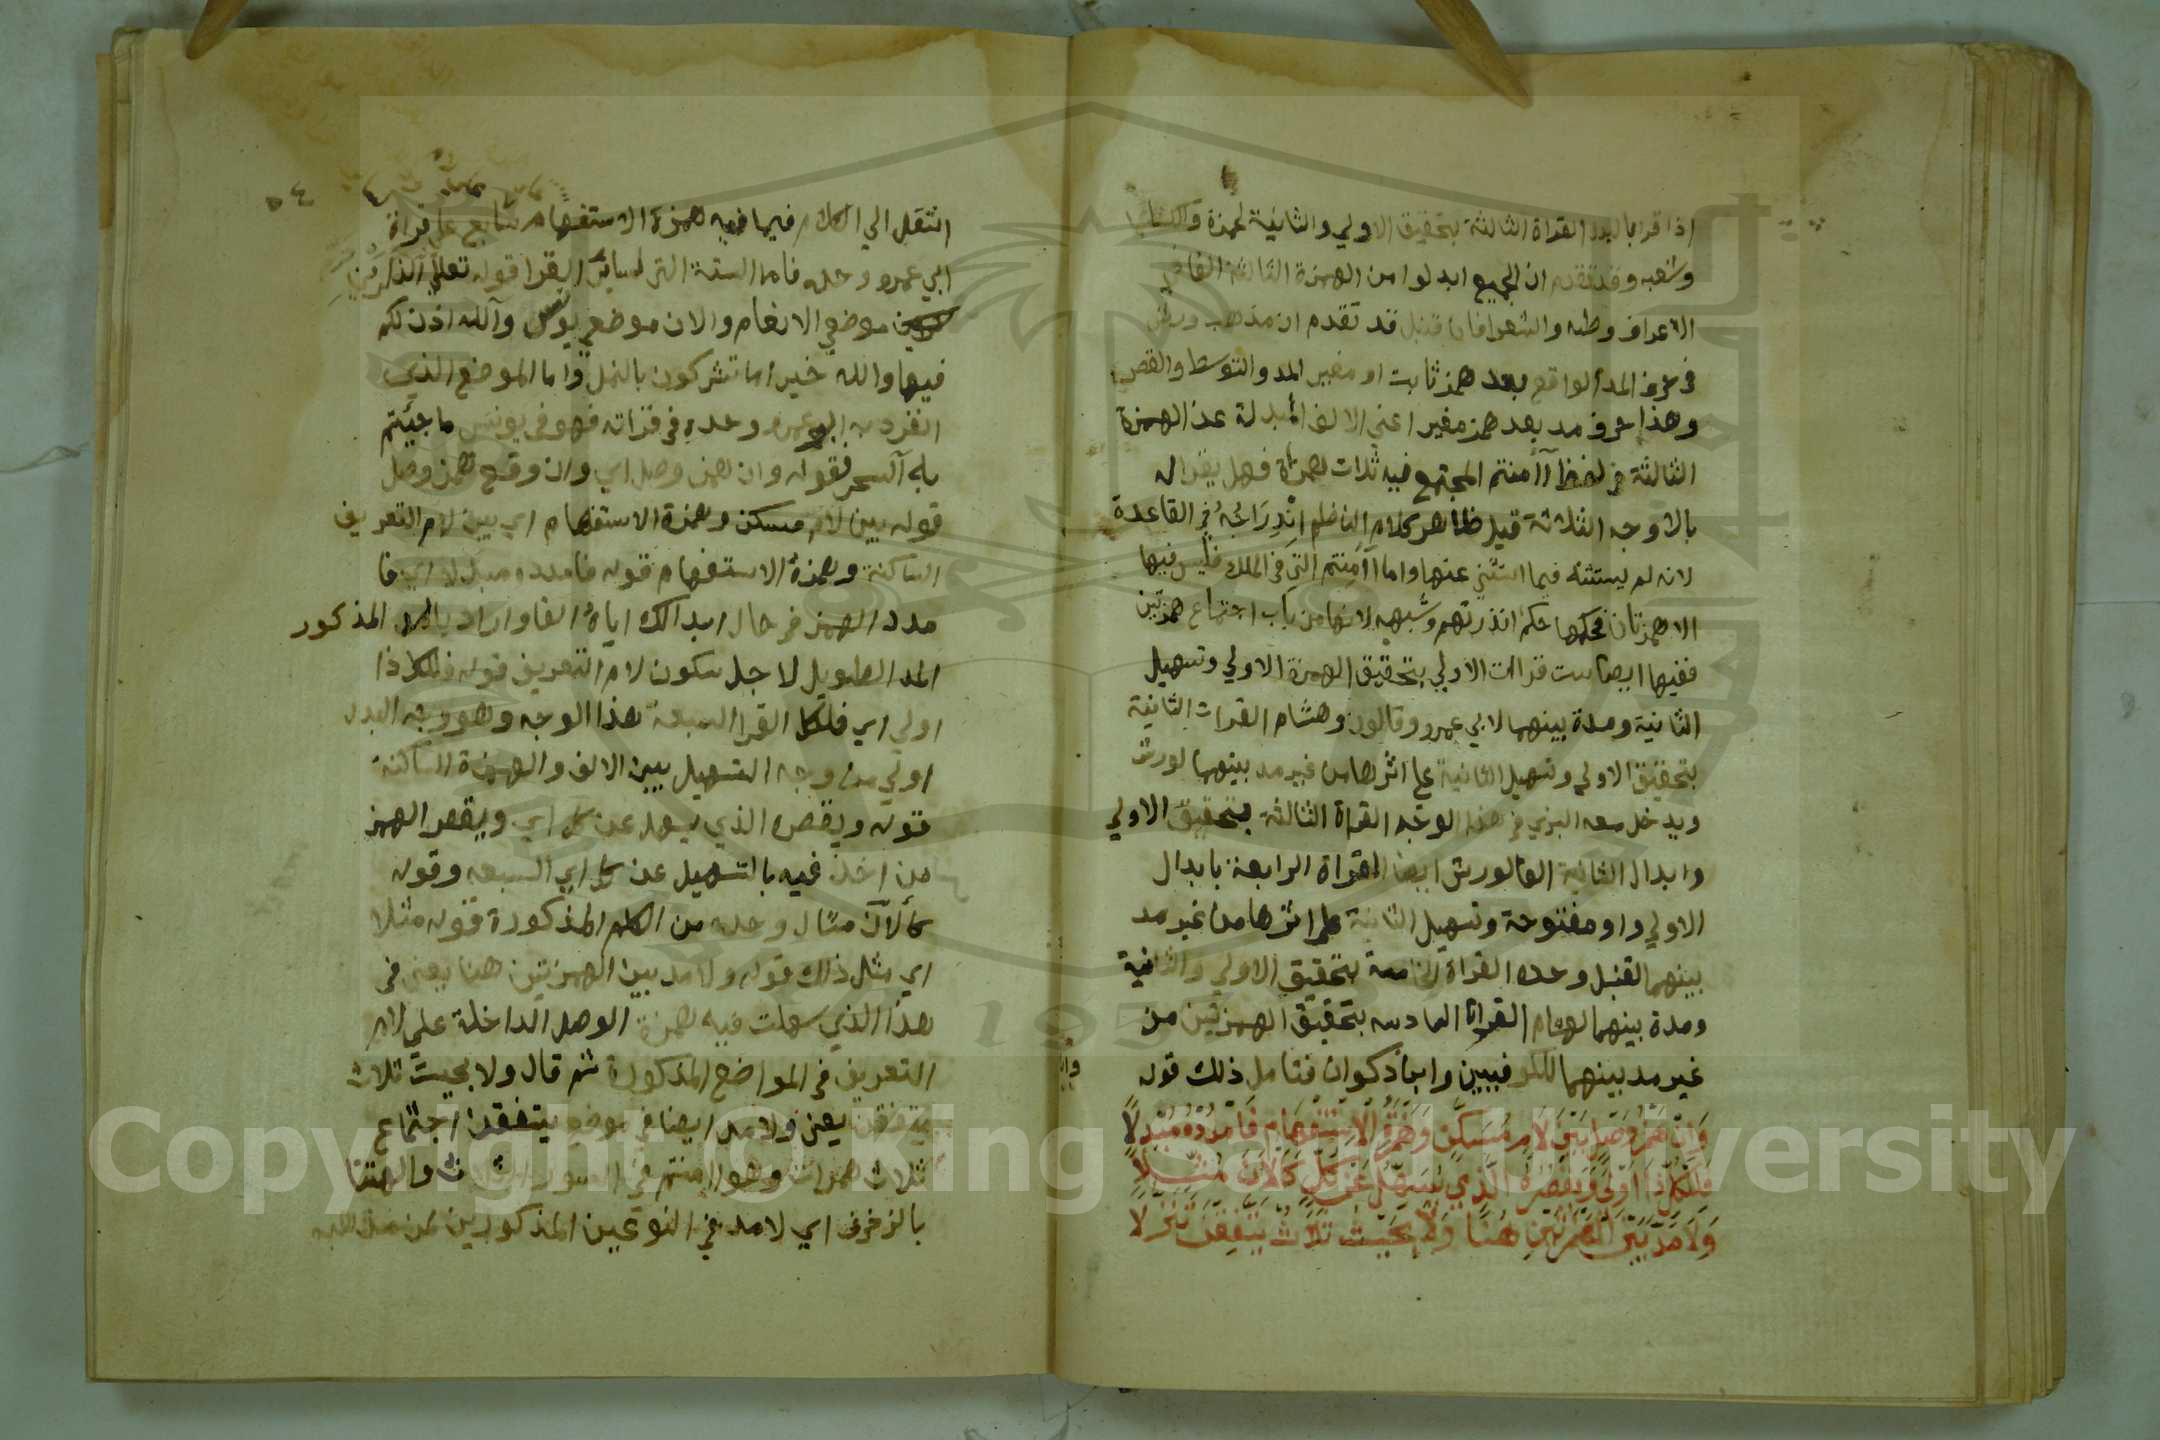 اذا قرا بالبدل القراة الثالثة بتحقيق الاولي والثانية لحمزة والكساي
وشعبه وقد تقدم ان الجميع ابدلوا من الهمزة الثالثة الفا في
الاعراف وطه والشعرا فان قيل قد تقدم ان مذهب ورش
في حرف المد الواقع بعد همز ثابت او مغير المد والتوسط والقصر
وهذا حرف مد بعد همز مغير اعني الالف المبدلة عن الهمزة
الثالثة في لفظ أآمنتم المجتمع فيه ثلاث همزات فهل يقرا له
بالاوجه الثلاثة قيل ظاهر كلام الناظم اندراجه في القاعدة
لانه لم يستثنه فيما استثني عنها واما أأمنتم التي في الملك فليس فيها
الا همزتان فحكمها حكم انذرتهم وشبهه لانها من باب اجتماع همزتين
ففيها ايضا ست قراات الاولي بتحقيق الهمزة الاولي وتسهيل
الثانية ومدة بينهما لابي عمرو وقالون وهشام القرات الثانية
بتحقيق الاولي وتسهيل الثانية علي اثرها من غير مد بينهما لورش
ويدخل معه البزي في هذا الوجه القراة الثالثة بتحقيق الاولي
وابدال الثانية الفا لورش ايضا القراة الرابعة بابدال
الاولي واو مفتوحة وتسهيل الثانية علي اثرها من غير مد
بينهما لقنبل وحده القراة الخامسة بتحقيق الاولي والثانية
ومدة بينهما لهشام القراة السادسه بتحقيق الهمزتين من
غير مد بينهما للكوفيين وابن ذكوان فتامل ذلك قوله
وَاِنْ هَمْزُ وَصْلٍ بَيْنَ لَامٍ مُسَكَّنٍ وَهَمْزَةِ الْاِسْتِفْهَامِ فَامْدُدْهُ مُبْدِلَا
فَلِلْكُلِّ ذَا اَوْلَى وَيَقْصُرُهُ الَّذِي يُسَهِّلُ عَنْ كُلٍّ كَآلْآنَ مُثِّلَا
وَلَا مَدَّ بَيْنَ الْهَمْزَتَيْنِ هُنَا وَلَا بِحَيْثُ ثَلَاثٌ يَتَّفِقْنَ تَنَزُّلَا
وان
٥٤
انتقل الي الكلام فيما فيه همزة الاستفهام سابع علي قراة
ابي عمرو وحده فاما الستة التي لسائر القرا قوله تعالي آلذكرين
موضعي الانعام والان موضعي يونس وآلله اذن لكم
فيها والله خير اما تشركون بالنمل واما الموضع الذي
انفرد به ابو عمرو وحده في قراته فهو في يونس ما جيتم
به آلسحر فقوله وان همز وصل اي وان وقع همز وصل
قوله بين لام مسكن وهمزة الاستفهام اي بين لام التعريف
الساكنة وهمزة الاستفهام قوله فامدده مبدلا اي فا
مدد الهمز في حال ابدالك اياه الفا واراد بالمد المذكور
المد الطويل لاجل سكون لام التعريف قوله فللكل ذا
اولي اي فلكل القرا السبعة هذا الوجه وهو وجه البدل
اولي من وجه التسهيل بين الالف والهمزة الساكنة
قوله ويقصره الذي يسهل عن كل اي ويقصر الهمز
من اخذ فيه بالتسهيل عن كل اي السبعه وقوله
كألآن مثال وحده من الكلم المذكورة قوله مثلا
اي مثل ذلك قوله ولا مد بين الهمزتين هنا يعني في
هذا الذي سهلت فيه همزة الوصل الداخلة علي لام
التعريف في المواضع المذكورة ثم قال ولا بحيث ثلاث
يتفقن يعني ولا مد ايضا في موضع يتفقن اجتماع
ثلاث همزات وهو اامنتم في السور الثلاث والهتنا
بالزخرف اي لا مد في النوعين المذكورين لمن مذهبه